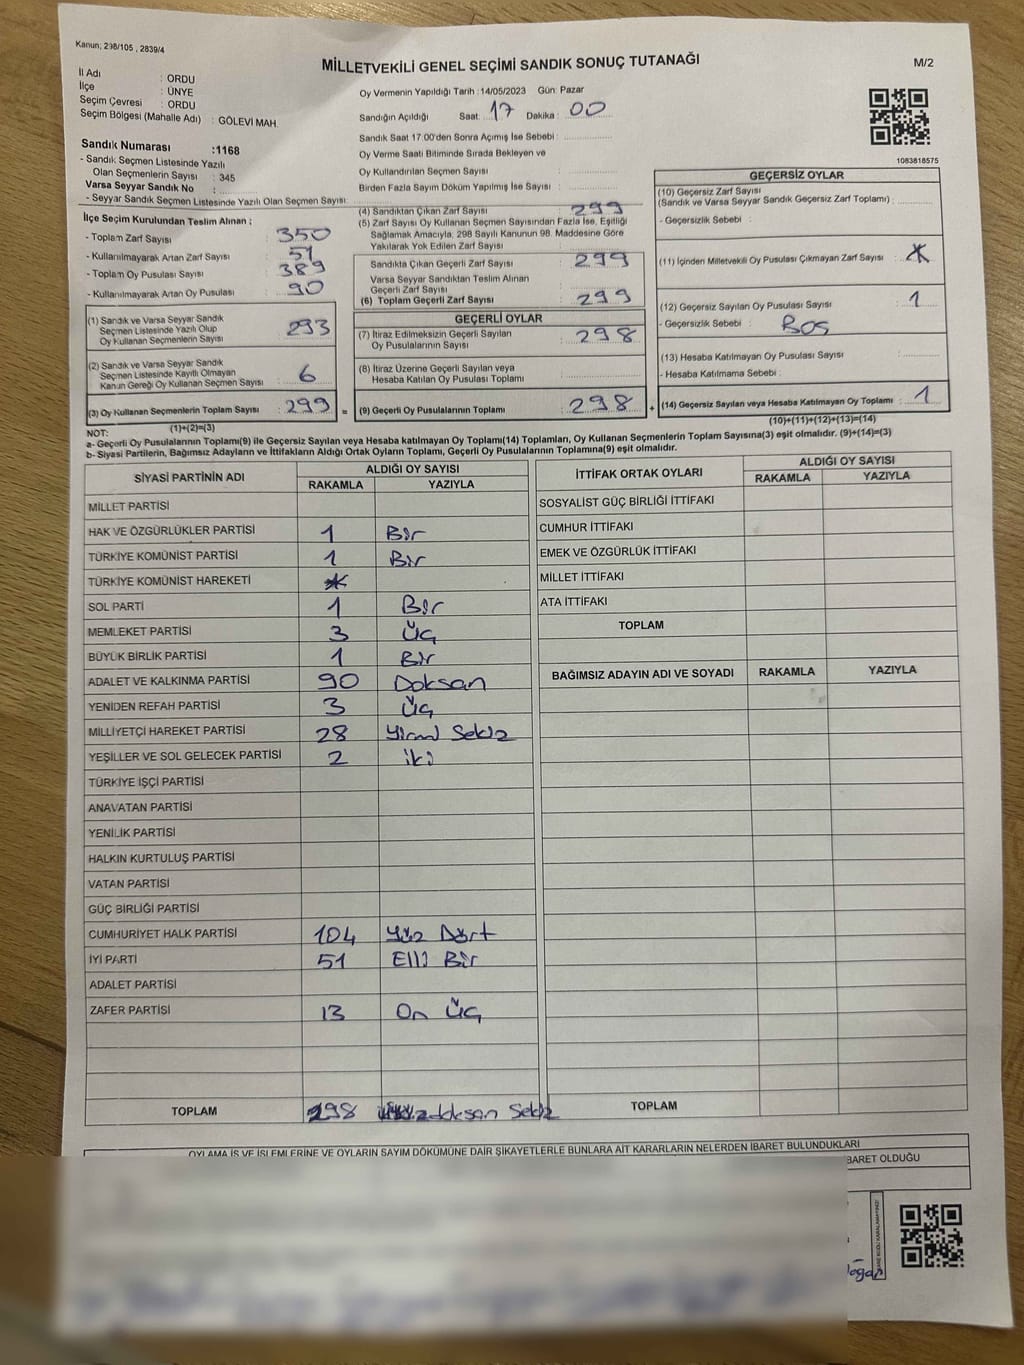 Kanun; 298/105 , 2839/4
MİLLETVEKİLİ GENEL SEÇİMİ SANDIK SONUÇ TUTANAĞI
M/2
İl Adı : ORDU
İlçe : ÜNYE
Seçim Çevresi : ORDU
Seçim Bölgesi (Mahalle Adı) : GÖLEVİ MAH.
Sandık Numarası :1168
- Sandık Seçmen Listesinde Yazılı
Olan Seçmenlerin Sayısı : 345
Varsa Seyyar Sandık No :
- Seyyar Sandık Seçmen Listesinde Yazılı Olan Seçmen Sayısı:
Oy Vermenin Yapıldığı Tarih :14/05/2023 Gün: Pazar
Sandığın Açıldığı Saat: 17 Dakika : 00
Sandık Saat 17.00'den Sonra Açımış İse Sebebi :
Oy Verme Saati Bitiminde Sırada Bekleyen ve
Oy Kullandırılan Seçmen Sayısı :
Birden Fazla Sayım Döküm Yapılmış İse Sayısı :
1083818575
İlçe Seçim Kurulundan Teslim Alınan :
- Toplam Zarf Sayısı : 350
- Kullanılmayarak Artan Zarf Sayısı : 51
- Toplam Oy Pusulası Sayısı : 389
- Kullanılmayarak Artan Oy Pusulası : 90
(1) Sandık ve Varsa Seyyar Sandık
Seçmen Listesinde Yazılı Olup
Oy Kullanan Seçmenlerin Sayısı : 293
(2) Sandık ve Varsa Seyyar Sandık
Seçmen Listesinde Kayıtlı Olmayan
Kanun Gereği Oy Kullanan Seçmen Sayısı : 6
(3) Oy Kullanan Seçmenlerin Toplam Sayısı : 299 =
(1)+(2)=(3)
(4) Sandıktan Çıkan Zarf Sayısı : 299
(5) Zarf Sayısı Oy Kullanan Seçmen Sayısından Fazla İse, Eşitliği
Sağlamak Amacıyla, 298 Sayılı Kanunun 98. Maddesine Göre
Yakılarak Yok Edilen Zarf Sayısı :
Sandıkta Çıkan Geçerli Zarf Sayısı : 299
Varsa Seyyar Sandıktan Teslim Alınan
Geçerli Zarf Sayısı :
(6) Toplam Geçerli Zarf Sayısı : 299
GEÇERLİ OYLAR
(7) İtiraz Edilmeksizin Geçerli Sayılan
Oy Pusulalarının Sayısı : 298
(8) İtiraz Üzerine Geçerli Sayılan veya
Hesaba Katılan Oy Pusulası Toplamı :
(9) Geçerli Oy Pusulalarının Toplamı : 298 +
GEÇERSİZ OYLAR
(10) Geçersiz Zarf Sayısı
(Sandık ve Varsa Seyyar Sandık Geçersiz Zarf Toplamı) :
- Geçersizlik Sebebi :
(11) İçinden Milletvekili Oy Pusulası Çıkmayan Zarf Sayısı :
(12) Geçersiz Sayılan Oy Pusulası Sayısı : 1
- Geçersizlik Sebebi : Boş
(13) Hesaba Katılmayan Oy Pusulası Sayısı :
- Hesaba Katılmama Sebebi :
(14) Geçersiz Sayılan veya Hesaba Katılmayan Oy Toplamı : 1
(10)+(11)+(12)+(13)=(14)
NOT:
a- Geçerli Oy Pusulalarının Toplamı(9) ile Geçersiz Sayılan veya Hesaba katılmayan Oy Toplamı(14) Toplamları, Oy Kullanan Seçmenlerin Toplam Sayısına(3) eşit olmalıdır. (9)+(14)=(3)
b- Siyasi Partilerin, Bağımsız Adayların ve İttifakların Aldığı Ortak Oyların Toplamı, Geçerli Oy Pusulalarının Toplamına(9) eşit olmalıdır.
SİYASİ PARTİNİN ADI ALDIĞI OY SAYISI
RAKAMLA YAZIYLA
MİLLET PARTİSİ
HAK VE ÖZGÜRLÜKLER PARTİSİ 1 Bir
TÜRKİYE KOMÜNİST PARTİSİ 1 Bir
TÜRKİYE KOMÜNİST HAREKETİ
SOL PARTİ 1 Bir
MEMLEKET PARTİSİ 3 Üç
BÜYÜK BİRLİK PARTİSİ 1 Bir
ADALET VE KALKINMA PARTİSİ 90 Doksan
YENİDEN REFAH PARTİSİ 3 Üç
MİLLİYETÇİ HAREKET PARTİSİ 28 Yirmi Sekiz
YEŞİLLER VE SOL GELECEK PARTİSİ 2 iki
TÜRKİYE İŞÇİ PARTİSİ
ANAVATAN PARTİSİ
YENİLİK PARTİSİ
HALKIN KURTULUŞ PARTİSİ
VATAN PARTİSİ
GÜÇ BİRLİĞİ PARTİSİ
CUMHURİYET HALK PARTİSİ 104 Yüz Dört
İYİ PARTİ 51 Elli Bir
ADALET PARTİSİ
ZAFER PARTİSİ 13 On Üç
TOPLAM 298 doksan Sekiz
İTTİFAK ORTAK OYLARI ALDIĞI OY SAYISI
RAKAMLA YAZIYLA
SOSYALİST GÜÇ BİRLİĞİ İTTİFAKI
CUMHUR İTTİFAKI
EMEK VE ÖZGÜRLÜK İTTİFAKI
MİLLET İTTİFAKI
ATA İTTİFAKI
TOPLAM
BAĞIMSIZ ADAYIN ADI VE SOYADI RAKAMLA YAZIYLA
TOPLAM
OYLAMA İŞ VE İŞLEMLERİNE VE OYLARIN SAYIM DÖKÜMÜNE DAİR ŞİKAYETLERLE BUNLARA AİT KARARLARIN NELERDEN İBARET BULUNDUKLARI
BARET OLDUĞU